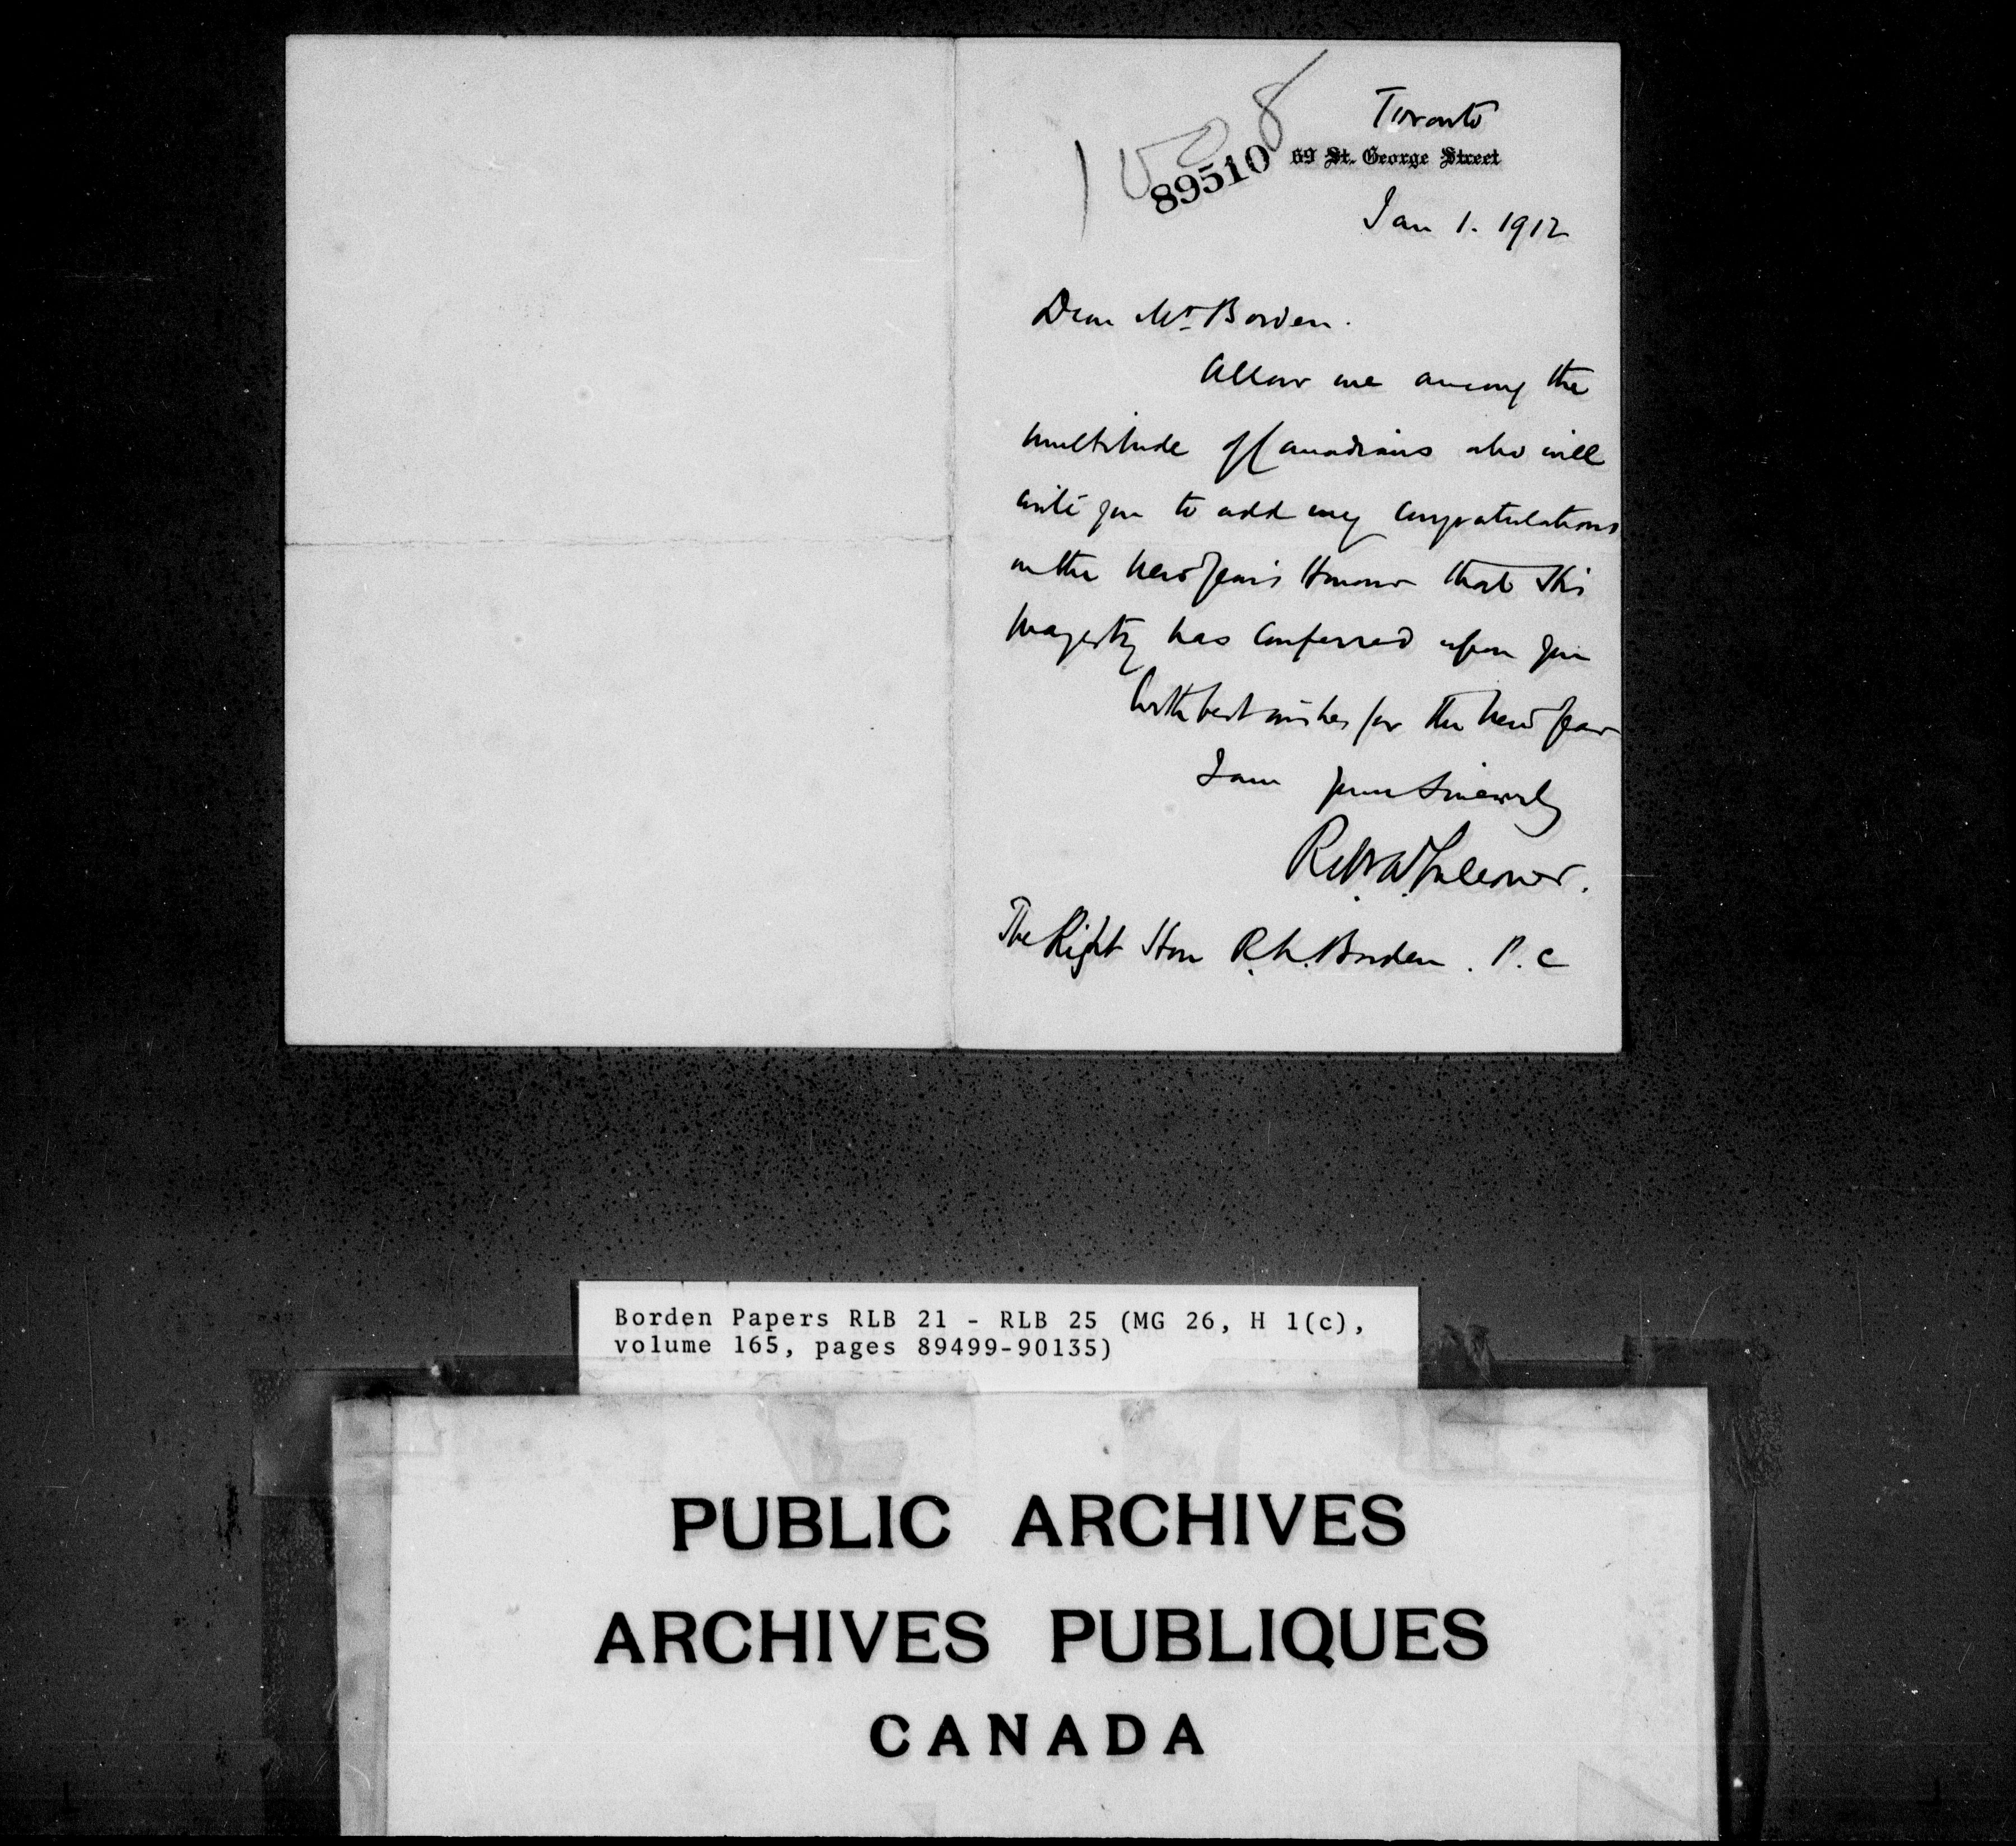 1508
89510
Toronto
69 St. George Street
Jan 1. 1912
Dear Mr Borden.
Allow me among the
multitude of Canadians who will
write you to add my congratulations
on the New Year's Honour that His
Majesty has conferred upon you
With best wishes for the New Year
I am yours sincerely
The Right Hon R. L. Borden. P. C
Borden Papers RLB 21 - RLB 25 (MG 26, H 1(c),
volume 165, pages 89499-90135)
PUBLIC ARCHIVES
ARCHIVES PUBLIQUES
CANADA